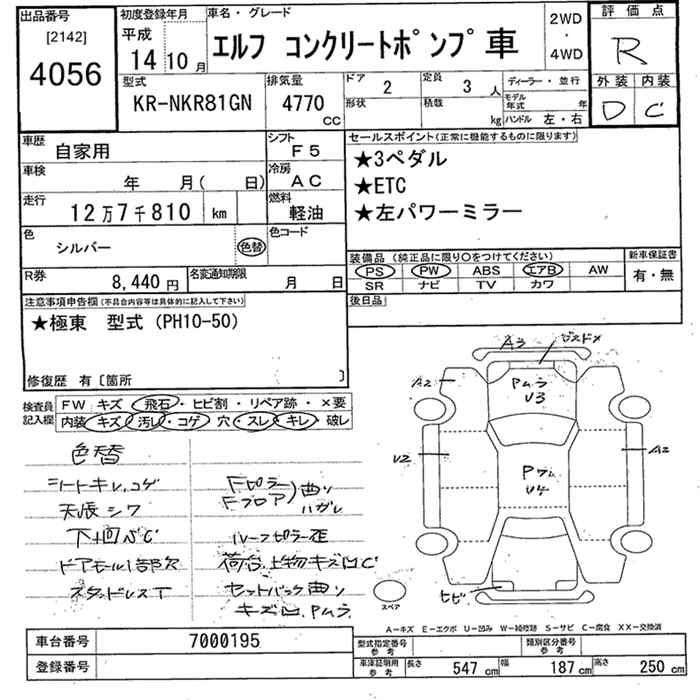 出品番号
[2142]
4056
初度登録年月
平成
14 10 月
車名・グレード
エルフ コンクリートポンプ車
2WD
・
4WD
評価点
R
型式
KR-NKR81GN
排気量
4770
CC
ドア 2
形状
定員 3 人
積載 kg
ディーラー・並行
モデル年式 年
ハンドル 左・右
外装 内装
D C
車歴
自家用
シフト
F5
車検
年 月( 日)
冷房
AC
走行
12万7千810 km
燃料
軽油
色
シルバー
色替
色コード
R券
8,440 円
名変通知期限
月 日
セールスポイント(正常に機能するものに限ります)
★3ペダル
★ETC
★左パワーミラー
装備品 (純正品に限り○をつけてください)
PS PW ABS エアB AW
SR ナビ TV カワ
新車保証書
有・無
後日品
注意事項申告欄(不具合内容等は具体的に記入して下さい)
★極東 型式 (PH10-50)
修復歴 有〔箇所 〕
検査員記入欄
FW キズ 飛石・ヒビ割・リペア跡・×要
内装 キズ 汚レ・コゲ 穴・スレ・キレ・破レ
色替
シートキレ、コゲ
天張シワ
下廻サビC
ドアモール1部欠
スタッドレスT
Fピラー
Fフロア
曲り
ハガレ
ルーフピラー歪
荷台、上物キズ凹C
セットバック曲り
キズ凹、Pムラ
A3
A2
Pムラ
U3
U2
A2
U4
ヒビ
スペア
A−キズ E−エクボ U−凹み W−補修跡 S−サビ C−腐食 XX−交換済
車台番号
7000195
登録番号
型式指定番号
参考
類別区分番号
参考
車庫証明用
参考
長さ 547 cm
幅 187 cm
高さ 250 cm